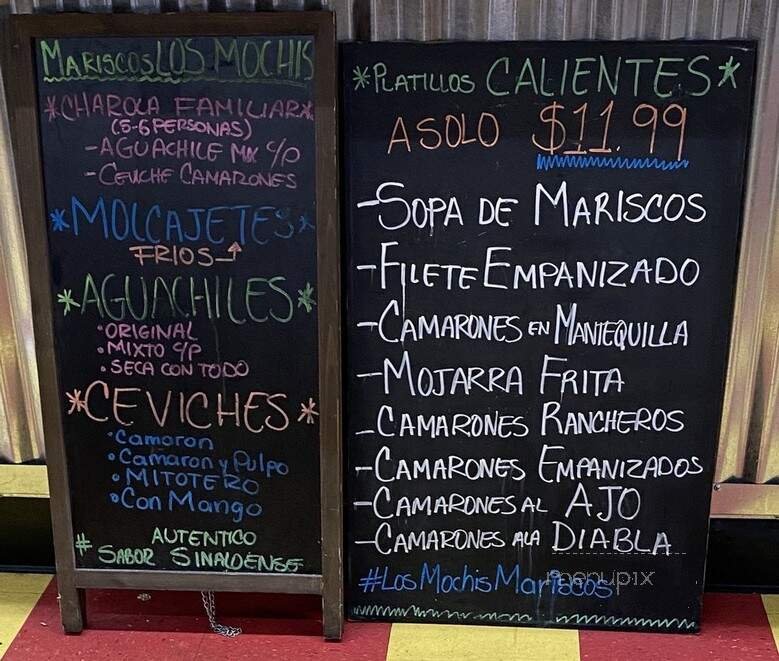 MARISCOS LOS MOCHIS
*CHAROLA FAMILIAR*
(5-6 PERSONAS)
-AGUACHILE MIX C/P
-CEVICHE CAMARONES
*MOLCAJETES*
FRIOS
*AGUACHILES*
•ORIGINAL
•MIXTO C/P
•SECA CON TODO
*CEVICHES*
•Camaron
•Camaron y Pulpo
•MITOTERO
•Con Mango
# AUTENTICO
SABOR SINALOENSE
*PLATILLOS CALIENTES*
A SOLO $11.99
-SOPA DE MARISCOS
-FILETE EMPANIZADO
-CAMARONES EN MANTEQUILLA
-MOJARRA FRITA
-CAMARONES RANCHEROS
-CAMARONES EMPANIZADOS
-CAMARONES AL AJO
-CAMARONES A LA DIABLA
#LOSMOCHISMARISCOS
menupix